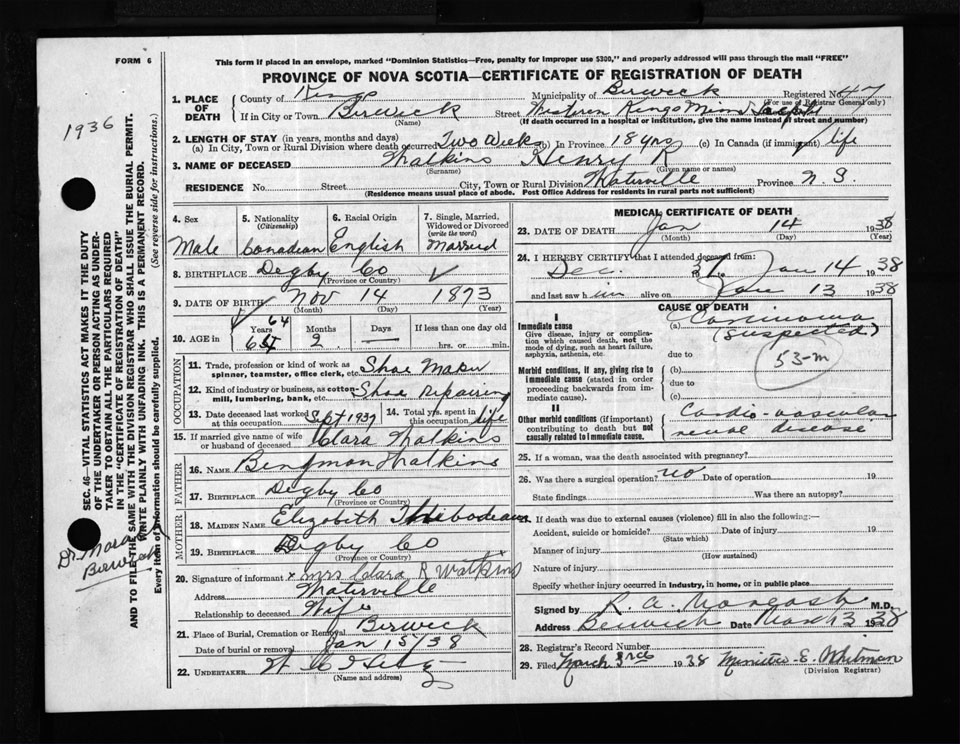 FORM 6
This form if placed in an envelope, marked "Dominion Statistics—Free, penalty for improper use $300," and properly addressed will pass through the mail "FREE"
PROVINCE OF NOVA SCOTIA—CERTIFICATE OF REGISTRATION OF DEATH
1936
SEC. 46—VITAL STATISTICS ACT MAKES IT THE DUTY
OF THE UNDERTAKER OR PERSON ACTING AS UNDER-
TAKER TO OBTAIN ALL THE PARTICULARS REQUIRED
IN THE "CERTIFICATE OF REGISTRATION OF DEATH"
AND TO FILE THE SAME WITH THE DIVISION REGISTRAR WHO SHALL ISSUE THE BURIAL PERMIT.
WRITE PLAINLY WITH UNFADING INK. THIS IS A PERMANENT RECORD.
Every item of information should be carefully supplied. (See reverse side for instructions.)
Berwick
1. PLACE OF DEATH
County of Kings Municipality of Berwick Registered No. 47
(For use of Registrar General only)
If in City or Town Berwick Street Western Kings Mem Hospital
(Name) (If death occurred in a hospital or institution, give the name instead of street and number)
2. LENGTH OF STAY (in years, months and days)
(a) In City, Town or Rural Division where death occurred Two Weeks (b) In Province 18 yrs (c) In Canada (if immigrant) life
3. NAME OF DECEASED Watkins Henry R
(Surname) (Given name or names)
RESIDENCE No. Street City, Town or Rural Division Waterville Province N.S.
(Residence means usual place of abode. Post Office Address for residents in rural parts not sufficient)
4. Sex Male
5. Nationality (Citizenship) Canadian
6. Racial Origin English
7. Single, Married, Widowed or Divorced (write the word) Married
8. BIRTHPLACE Digby Co
(Province or Country)
9. DATE OF BIRTH Nov 14 1873
(Month) (Day) (Year)
10. AGE in Years 64 Months 2 Days — If less than one day old hrs. or min.
OCCUPATION
11. Trade, profession or kind of work as spinner, teamster, office clerk, etc. Shoe Maker
12. Kind of industry or business, as cotton-mill, lumbering, bank, etc. Shoe repairing
13. Date deceased last worked at this occupation Sept 1937 14. Total yrs. spent in this occupation life
15. If married give name of wife or husband of deceased Clara Watkins
FATHER
16. NAME Watkins
17. BIRTHPLACE Digby Co
(Province or Country)
MOTHER
18. MAIDEN NAME Elizabeth Thibodeau
19. BIRTHPLACE Digby Co
(Province or Country)
20. Signature of informant x Mrs Clara R Watkins
Address Waterville
Relationship to deceased Wife
21. Place of Burial, Cremation or Removal Berwick
Date of burial or removal Jan 15/38
22. UNDERTAKER
(Name and address)
MEDICAL CERTIFICATE OF DEATH
23. DATE OF DEATH Jan 14 1938
(Month) (Day) (Year)
24. I HEREBY CERTIFY that I attended deceased from:
Dec. 31 to Jan 14 1938
and last saw him alive on Jan 13 1938
CAUSE OF DEATH
I
Immediate cause
Give disease, injury or complication which caused death, not the mode of dying, such as heart failure, asphyxia, asthenia, etc.
(a) Carcinoma (suspected)
due to
53-m
Morbid conditions, if any, giving rise to immediate cause (stated in order proceeding backwards from immediate cause).
(b)
due to
(c)
II
Other morbid conditions (if important) contributing to death but not causally related to immediate cause.
Cardio-vascular renal disease
25. If a woman, was the death associated with pregnancy?
26. Was there a surgical operation? no Date of operation 19
State findings Was there an autopsy?
27. If death was due to external causes (violence) fill in also the following:—
Accident, suicide or homicide? Date of injury 19
(State which)
Manner of injury
(How sustained)
Nature of injury
Specify whether injury occurred in industry, in home, or in public place
Signed by M.D.
Address Berwick Date March 3 1938
28. Registrar's Record Number
29. Filed March 3rd 1938 Whitman
(Division Registrar)